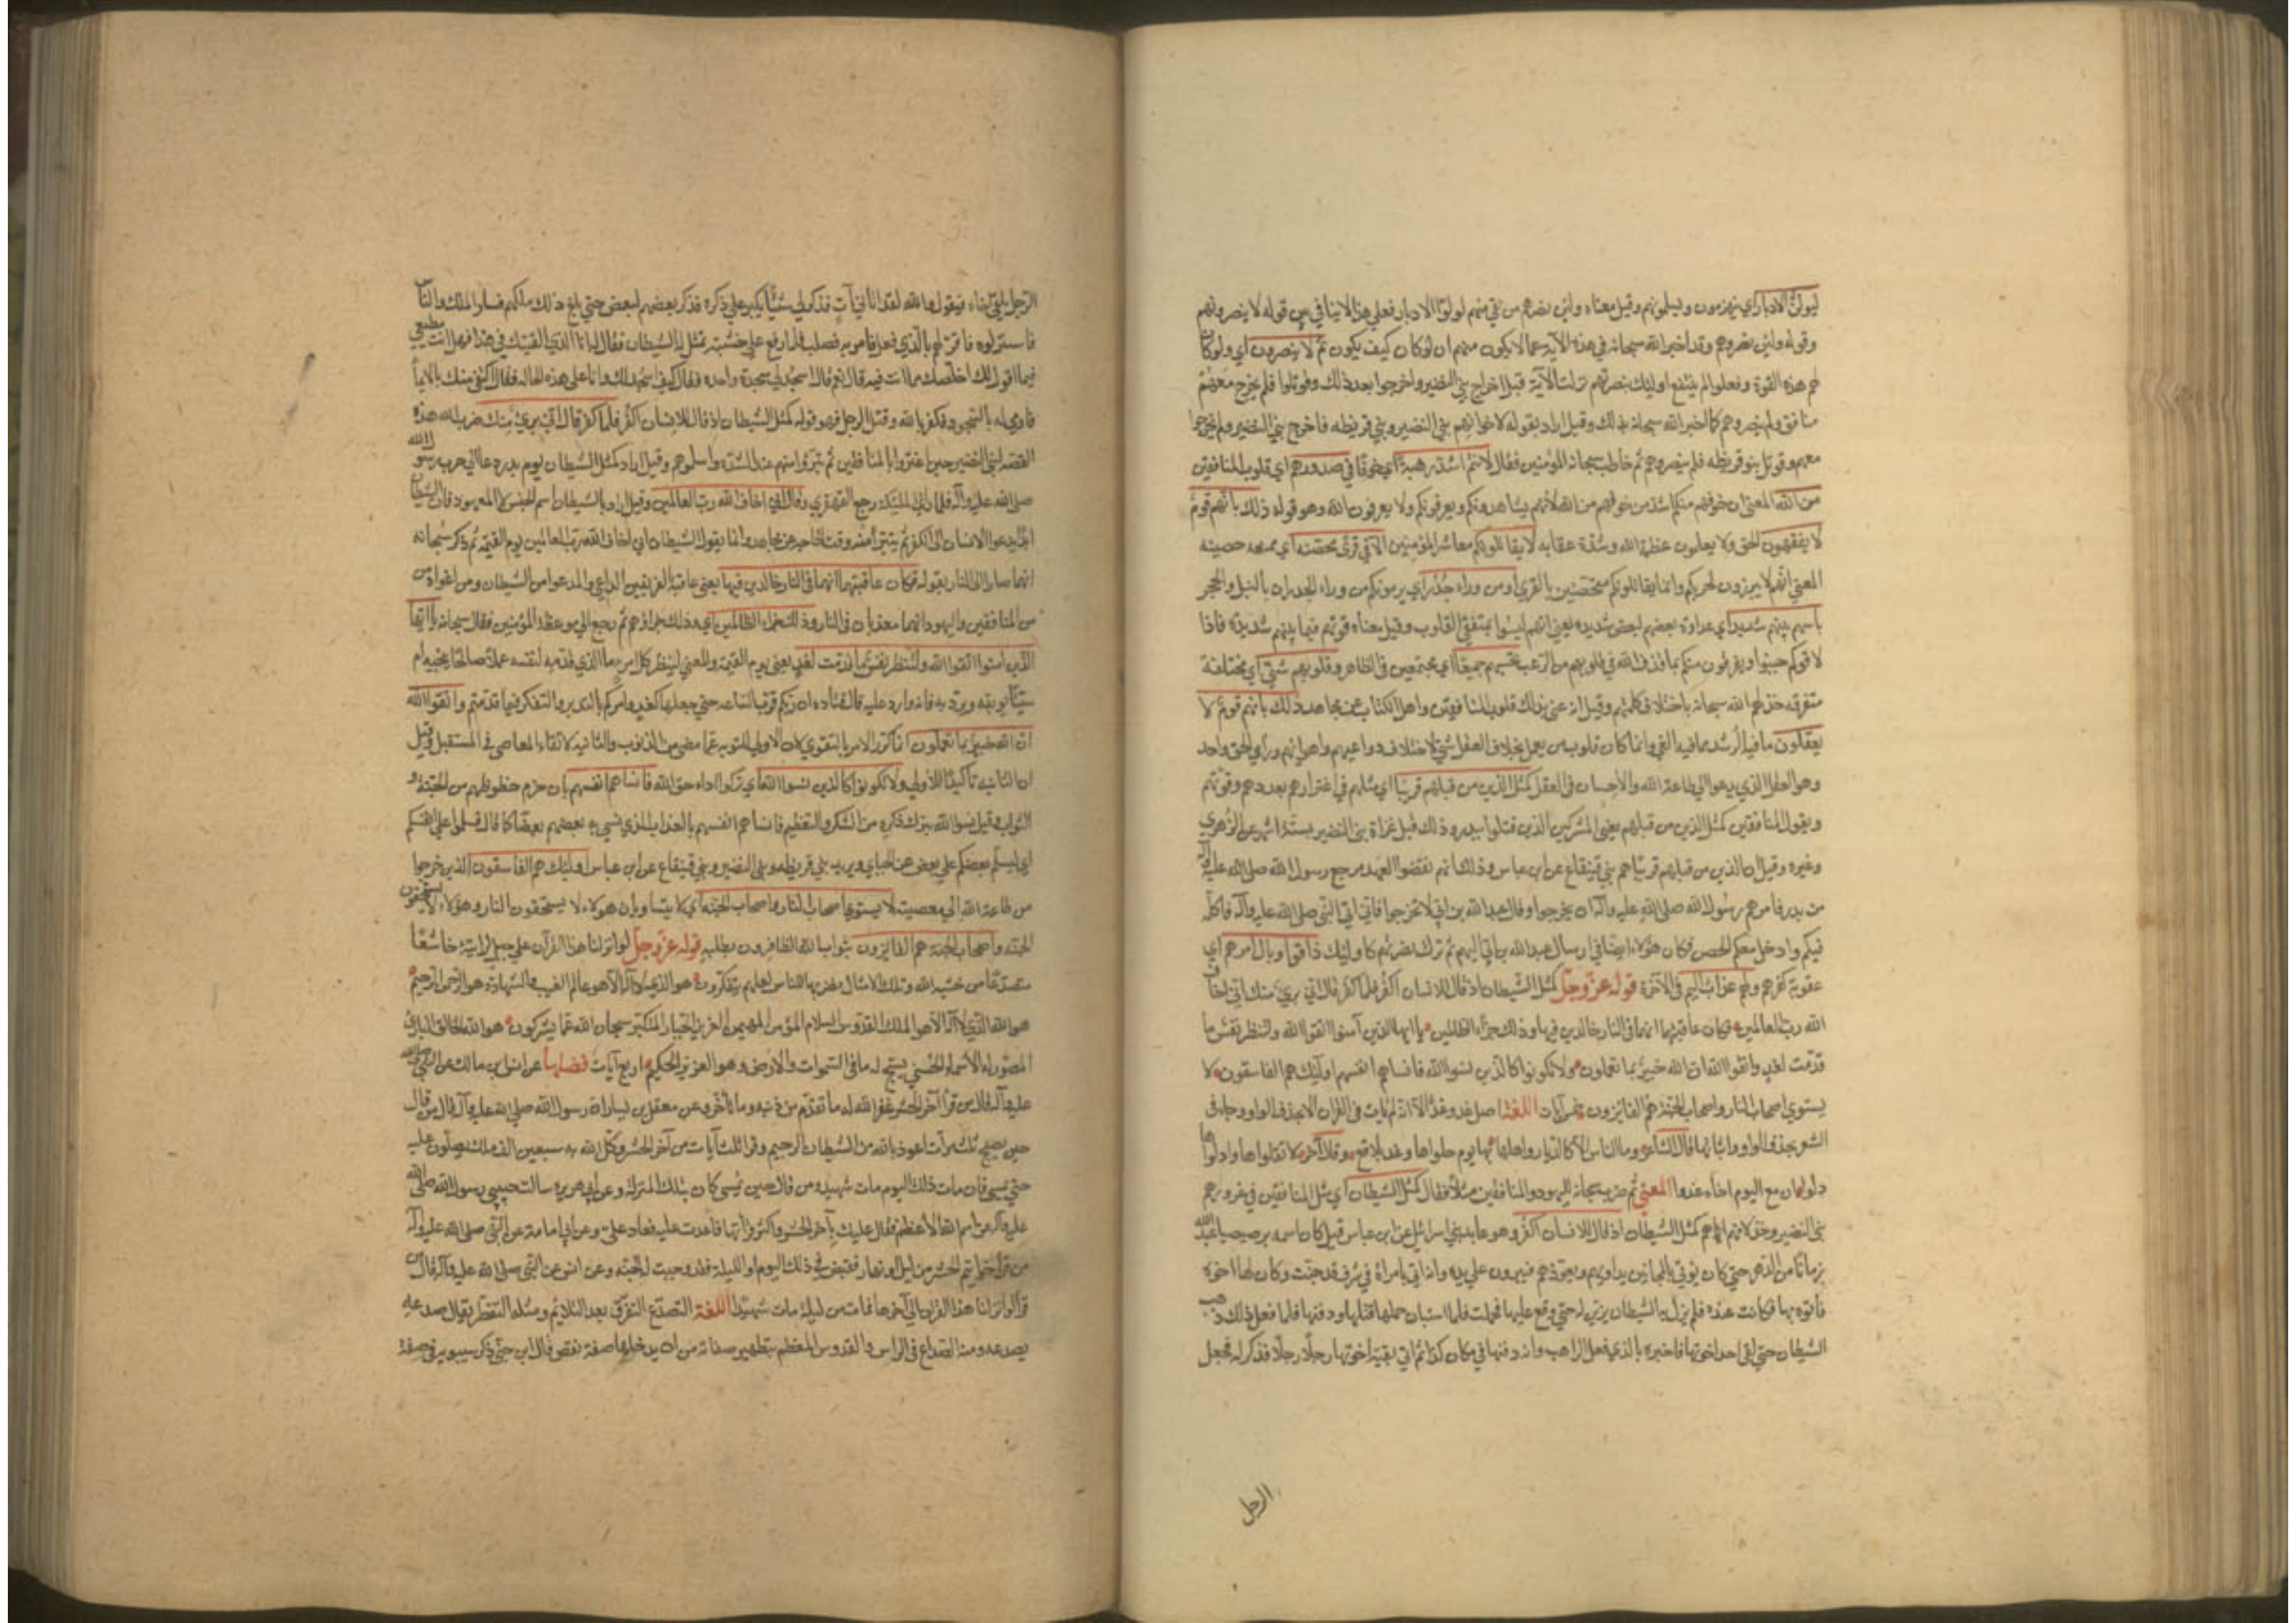 ليولن الادبار اي ينهزمون ويسلمونهم وقيل معناه ولئن نصرهم من بقي منهم لولوا الادبار فعلي هذا لا ينافي بين قوله لا ينصرونهم
وقوله ولئن نصروهم وقد اخبر الله سبحانه في هذه الآية عما لا يكون منهم ان لو كان كيف يكون ثم لا ينصرون اي ولو كان
لهم هذه القوة وفعلوا لم ينتفع اولئك بنصرتهم نزلت الآية قبل اخراج بني النضير واخرجوا بعد ذلك وقوتلوا فلم يخرج معهم
منافق ولم ينصروهم كما اخبر الله سبحانه بذلك وقيل اراد بقوله لاخوانهم بني النضير وبني قريظه فاخرج بني النضير ولم يخرجوا
معهم وقوتل بنو قريظه فلم ينصروهم ثم خاطب سبحانه المؤمنين فقال لانتم اشد رهبة اي خوفا في صدورهم اي قلوب المنافقين
من الله المعني ان خوفهم منكم اشد من خوفهم من الله لانهم يشاهدونكم ويعرفونكم ولا يعرفون الله وهو قوله ذلك بانهم قوم
لا يفقهون الحق ولا يعلمون عظمة الله وشدة عقابه لا يقاتلونكم معاشر المؤمنين الا في قري محصنه اي ممتنعه حصينه
المعني انهم لا يبرزون لحربكم وانما يقاتلونكم متحصنين بالقري او من وراء جدر اي يرمونكم من وراء الجدران بالنبل والحجر
باسهم بينهم شديد اي عداوة بعضهم لبعض شديده يعني انهم ليسوا بمتفقي القلوب وقيل معناه قوتهم فيما بينهم شديدة فاذا
لاقوكم جبنوا ويفرقون منكم بما قذف الله في قلوبهم من الرعب تحسبهم جميعا اي مجتمعين في الظاهر وقلوبهم شتي اي مختلفة
متفرقه خذلهم الله سبحانه باختلاف كلمتهم وقيل انه عني بذلك قلوب المنافقين واهل الكتاب عن مجاهد ذلك بانهم قوم لا
يعقلون ما فيه الرشد مما فيه الغي وانما كان قلوب من يعمل بخلاف العقل شتي لاختلاف دواعيهم واهوائهم وداعي الحق واحد
وهو العقل الذي يدعو الي طاعة الله والاحسان في العقل كمثل الذين من قبلهم قريبا اي مثلهم في اغترارهم بعددهم وقوتهم
وبقول المنافقين كمثل الذين من قبلهم يعني المشركين الذين قتلوا ببدر وذلك قبل غزاة بني النضير بستة اشهر عن الزهري
وغيره وقيل ان الذين من قبلهم قريبا هم بني قينقاع عن ابن عباس وذلك انهم نقضوا العهد مرجع رسول الله صلي الله عليه وآله
من بدر فامرهم رسول الله صلي الله عليه وآله ان يخرجوا وقال عبد الله بن ابي لا تخرجوا فاني آتي النبي صلي الله عليه وآله فاكلمه
فيكم وادخل معكم الحصن فكان هؤلاء ايضا في ارسال عبد الله بن ابي اليهم ثم ترك نصرتهم كاولئك ذاقوا وبال امرهم اي
عقوبة كفرهم ولهم عذاب اليم في الآخرة قوله عز وجل كمثل الشيطان اذ قال للانسان اكفر فلما كفر قال اني بريء منك اني اخاف
الله رب العالمين فكان عاقبتهما انهما في النار خالدين فيها وذلك جزاء الظالمين يا ايها الذين آمنوا اتقوا الله ولتنظر نفس ما
قدمت لغد واتقوا الله ان الله خبير بما تعملون ولا تكونوا كالذين نسوا الله فانساهم انفسهم اولئك هم الفاسقون لا
يستوي اصحاب النار واصحاب الجنة هم الفائزون خمس آيات اللغة اصل غد وغدو الا انه لم يات في القرآن الا بحذف الواو وجاء في
الشعر بحذف الواو واثباتها قال الشاعر وما الناس الا كالديار واهلها بها يوم حلوها وغدوا بلاقع وقال آخر لا تقلواها وادلواها
دلوا ان مع اليوم اخاه غدوا المعني ثم ضرب سبحانه لليهود والمنافقين مثلا فقال كمثل الشيطان اي مثل المنافقين في غرورهم
بني النضير وخذلانهم اياهم كمثل الشيطان اذ قال للانسان اكفر وهو عابد بني اسرائيل عن ابن عباس قيل كان اسمه برصيصا عبد الله
زمانا من الدهر حتي كان يوتي بالمجانين يداويهم ويعوذهم فيبرون علي يده وانه اتي بامراة في شرف قد جنت وكان لها اخوة
فاتوه بها فكانت عنده فلم يزل به الشيطان يزين له حتي وقع عليها فحملت فلما استبان حملها قتلها ودفنها فلما فعل ذلك ذهب
الشيطان حتي لقي احد اخوتها فاخبره بالذي فعل الراهب وانه دفنها في مكان كذا ثم اتي بقية اخوتها رجلا رجلا فذكر له فجعل
الرجل
الرجل يلقي اخاه فيقول والله لقد اتاني آت فذكر لي شيئا يكبر علي ذكره فذكر بعضهم لبعض حتي بلغ ذلك ملكهم فسار الملك والناس
فاستنزلوه فاقر لهم بالذي فعل فامر به فصلب فلما رفع علي خشبته تمثل له الشيطان فقال له انا الذي القيتك في هذا فهل انت مطيعي
فيما اقول لك اخلصك مما انت فيه قال نعم قال اسجد لي سجدة واحده فقال كيف اسجد لك وانا علي هذه الحاله فقال اكتفي منك بالايماء
فاومي له بالسجود فكفر بالله وقتل الرجل فهو قوله كمثل الشيطان اذ قال للانسان اكفر فلما كفر قال اني بريء منك ضرب الله هذه
القصه لبني النضير حين اغتروا بالمنافقين ثم تبرؤا منهم عند الشدة واسلموهم وقيل اراد كمثل الشيطان يوم بدر دعا الي حرب رسول الله
صلي الله عليه وآله فلما راي الملئكة رجع القهقري وقال اني اخاف الله رب العالمين وقيل اراد بالشيطان اسم الجنس لا المعهود فان الشيطان
ابدا يدعو الانسان الي الكفر ثم يتبرأ منه وقت الحاجة عن مجاهد وانما يقول الشيطان اني اخاف الله رب العالمين يوم القيمة ثم ذكر سبحانه
انهما صارا الي النار بقوله فكان عاقبتهما انهما في النار خالدين فيها يعني عاقبة الفريقين الداعي والمدعو من الشيطان ومن اغواه من
من المنافقين واليهود انهما معذبان في النار وذلك جزاء الظالمين اي وذلك جزاؤهم ثم رجع الي موعظة المؤمنين فقال سبحانه يا ايها
الذين آمنوا اتقوا الله ولتنظر نفس ما قدمت لغد يعني يوم القيمة والمعني لينظر كل امرء ما الذي قدمه لنفسه عملا صالحا ينجيه ام
سيئا يوبقه ويرديه فانه وارد عليه قال قتاده ان ربكم قرب الساعه حتي جعلها كغد وامركم بالتدبر والتفكر فيما قدمتم واتقوا الله
ان الله خبير بما تعملون انما كرر الامر بالتقوي لان الاولي للتوبه عما مضي من الذنوب والثانية لاتقاء المعاصي في المستقبل وقيل
ان الثانيه تاكيد للاولي ولا تكونوا كالذين نسوا الله اي تركوا اداء حق الله فانساهم انفسهم بان حرم حظوظهم من الجنة و
الثواب وقيل نسوا الله بترك ذكره من الشكر والتعظيم فانساهم انفسهم بالعذاب الذي نسي به بعضهم بعضا كما قال فسلموا علي انفسكم
اي ليسلم بعضكم علي بعض عن الجبائي ويريد بني قريظه وبني النضير وبني قينقاع عن ابن عباس اولئك هم الفاسقون الذين خرجوا
من طاعة الله الي معصيته لا يستوي اصحاب النار واصحاب الجنة اي لا يتساويان هولاء لا يستحقون النار وهؤلاء لا يستحقون
الجنه واصحاب الجنة هم الفائزون بثواب الله الظافرون بطلبه قوله عز وجل لو انزلنا هذا القرآن علي جبل لرايته خاشعا
متصدعا من خشية الله وتلك الامثال نضربها للناس لعلهم يتفكرون هو الذي لا اله الا هو عالم الغيب والشهادة هو الرحمن الرحيم
هو الله الذي لا اله الا هو الملك القدوس السلام المؤمن المهيمن العزيز الجبار المتكبر سبحان الله عما يشركون هو الله الخالق البارئ
المصور له الاسماء الحسني يسبح له ما في السموات والارض وهو العزيز الحكيم اربع آيات فضلها عن انس بن مالك عن النبي صلي الله
عليه وآله قال من قرأ آخر الحشر غفر الله له ما تقدم من ذنبه وما تأخر وعن معقل بن يسار ان رسول الله صلي الله عليه وآله قال من قال
حين يصبح ثلث مرات اعوذ بالله من الشيطان الرجيم وقرا ثلث آيات من آخر الحشر وكل الله به سبعين الف ملك يصلون عليه
حتي يمسي فان مات ذلك اليوم مات شهيدا ومن قال حين يمسي كان بتلك المنزلة وعن ابي هريره سالت حبيبي رسول الله صلي الله
عليه وآله عن اسم الله الاعظم فقال عليك بآخر الحشر واكثر قراتها فاعدت عليه فعاد علي وعن ابي امامة عن النبي صلي الله عليه وآله
من قرأ خواتيم الحشر من ليل او نهار فقبض في ذلك اليوم او الليلة فقد وجبت له الجنه وعن انس عن النبي صلي الله عليه وآله قال من
قرأ لو انزلنا هذا القرآن الي آخرها فمات من ليلته مات شهيدا اللغة التصدع التفرق بعد التلاؤم ومثله التفطر يقال صدعه
يصدعه ومنه الصداع في الراس والقدوس المعظم بتطهير صفاته من ان يدخلها صفة نقص قال ابن جني ذكر سيبويه في صفة